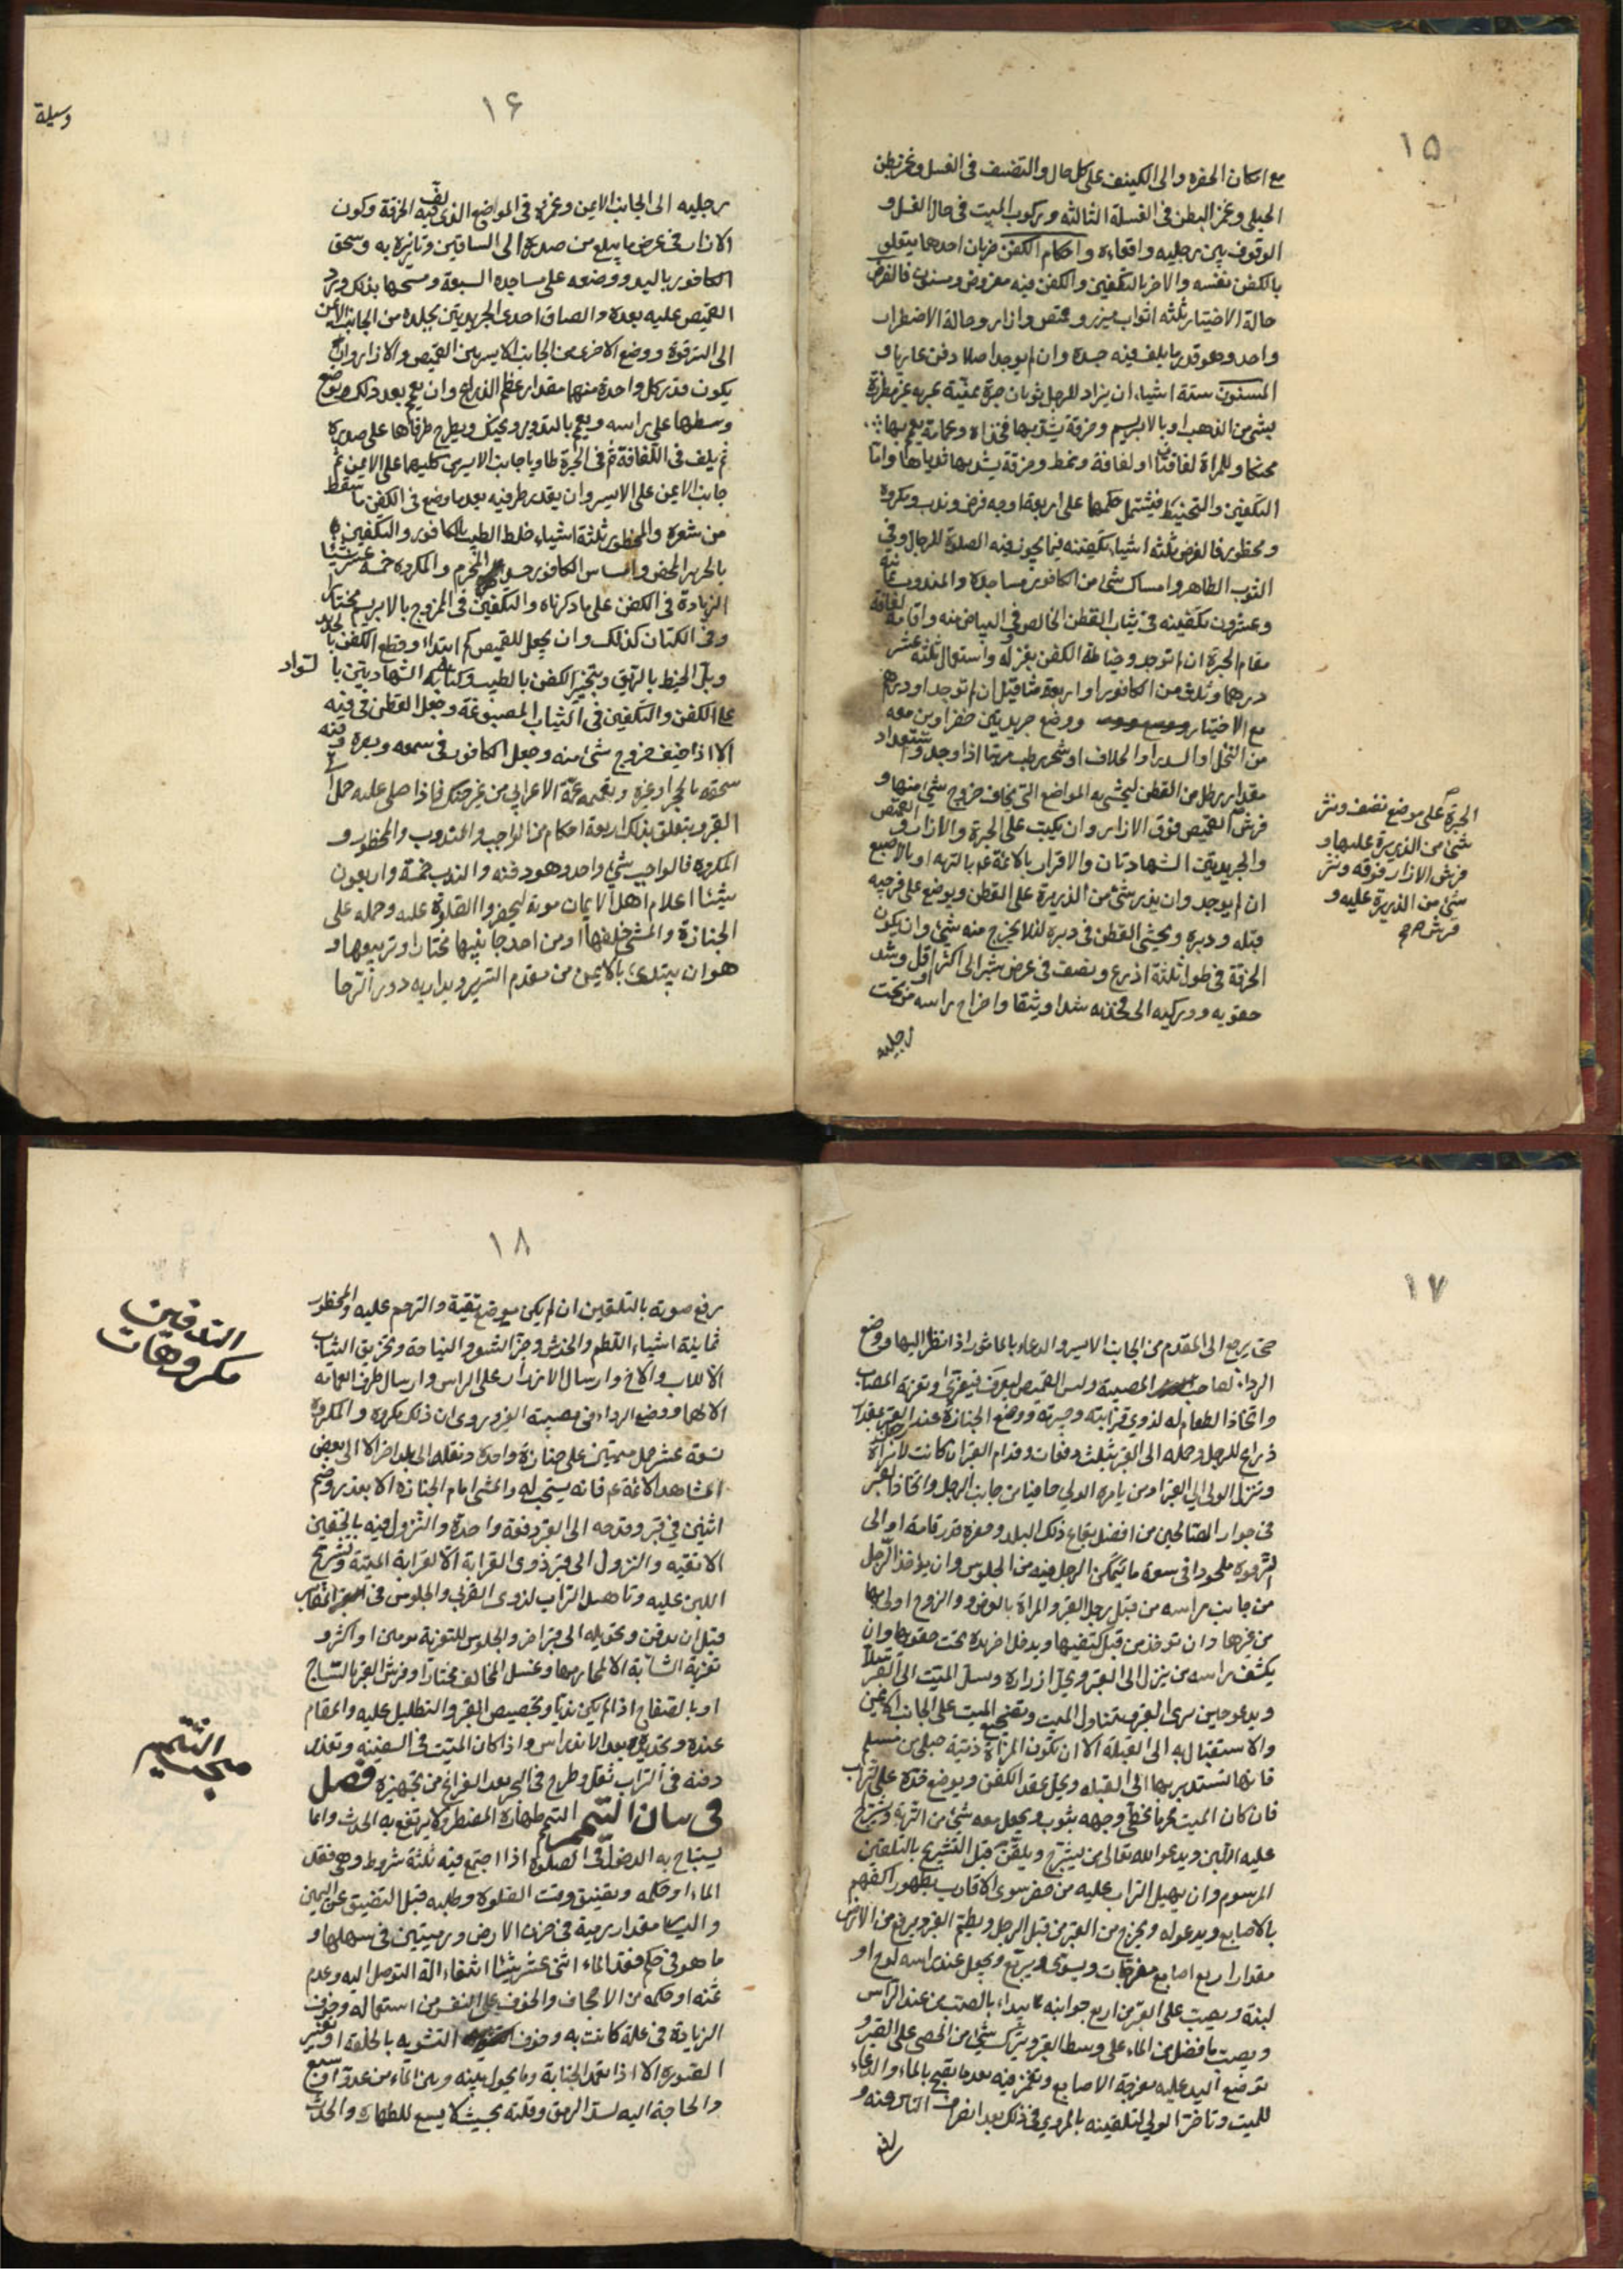 ١٥
مع امكان الحفرة والى الكنيف على كل حال والتضيف فى الغسل وغمز بطن
الحبلى وغمز البطن فى الغسلة الثالثه وركوب الميت فى حال الغسل و
الوقوف بين رجليه واقعاده واحكام الكفن ضربان احدهما يتعلق
بالكفن نفسه والاخر بالتكفين والكفن فيه مفروض ومسنون فالفرض
حالة الاختيار ثلثه اثواب ميزر وقميص وازار وحالة الاضطرار
واحد وهو قدر ما يلف فيه جسده وان لم يوجد اصلا دفن عاريا و
المسنون ستة اشياء ان يزاد للرجل ثوبان حبرة يمنية عبريه غير مطرزة
بشئ من الذهب او بالابريسم وخرقة يشد بها فخذاه وعمامة يعمم بها
محنكا وللمراة لفافتان او لفافة ونمط وخرقة يشد بها ثدياها واما
التكفين والتحنيط فيشتمل حكمها على اربعة اوجه فرض وندب ومكروه
ومحظور فالفرض ثلثه اشياء تكفينه فيما يجوز فيه الصلوة للرجال وفى
الثوب الطاهر وامساس شئ من الكافور مساجده والمندوب ثمانية
وعشرون تكفينه فى ثياب القطن الخالص فى البياض منه واقامة لفافة
مقام الحبرة ان لم توجد وخياطة الكفن بغزله واستعمال ثلثه عشر
درهما وثلث من الكافور او اربعة مثاقيل ان لم توجد او درهم
مع الاختيار ووضع جريدتين خضراوين معه
من النخل او السدر او الخلاف او شجر رطب مرتبا اذا وجد واستعداد
مقدار رطل من القطن ليحشى به المواضع التى يخاف خروج شئ منها و
فرش القميص فوق الازار وان يكتب على الحبرة والازار والقميص
والجريدتين الشهادتان والاقرار بالائمة ع بالتربه او بالاصبع
ان لم يوجد وان يذر شئ من الذريرة على القطن ويوضع على فرجيه
قبله ودبره ويحشى القطن فى دبره لئلا يخرج منه شئ وان يكون
الخرقة فى طول ثلثة اذرع ونصف فى عرض شبر الى اكثر او اقل وشد
حقويه ووركيه الى فخذيه شدا وثيقا واخراج راسه من تحت
رجليه
الحبرة على موضع نضف ونثر
شئ من الذريرة عليها و
فرش الازار فوقه ونثر
شئ من الذريرة عليه و
فرش صح
١۶
وسيلة
رجليه الى الجانب الايمن وغمزه فى المواضع الذى لف فيه الخرقة وكون
الازار فى عرض ما يبلغ من صدره الى الساقين وتازيره به وسحق
الكافور باليد ووضعه على مساجده السبعة ومسحها بذلك ورد
القميص عليه بعده والصاق احدى الجريدتين بجلده من الجانب الايمن
الى الترقوة ووضع الاخرى من الجانب الايسر بين القميص والازار وان
يكون قدر كل واحدة منهما مقدار عظم الذراع وان يعمم بعد ذلك ويوضع
وسطها على راسه ويعمم بالتدوير ويحنك ويطرح طرفاها على صدره
ثم يلف فى اللفافة ثم فى الحبرة طاويا جانب الايسر كليهما على الايمن ثم
جانب الايمن على الايسر وان يعقد طرفيه بعد ما وضع فى الكفن ما سقط
من شعره والمحظور ثلثة اشياء خلط الطيب بالكافور والتكفين
بالحرير المحض وامساس الكافور جسد المحرم والمكروه خمسة عشر شيئا
الزيادة فى الكفن على ما ذكرناه والتكفين فى الممزوج بالابريسم مختارا
وفى الكتان كذلك وان يجعل للقميص كم ابتداء وقطع الكفن بالحديد
وبل الخيط بالريق وتبخير الكفن بالطيب وكتابة الشهادتين بالسواد
على الكفن والتكفين فى الثياب المصبوغة وجعل القطن فى فيه
الا اذا خيف خروج شئ منه وجعل الكافور فى سمعه وبصره وفيه
سحقه بالحجر او غيره وتعميمه عمة الاعرابى من غير حنك فاذا صلى عليه حمل الى
القبر ويتعلق بذلك اربعة احكام من الواجب والمندوب والمحظور و
المكروه فالواجب شئ واحد وهو دفنه والندب خمسة واربعون
شيئا اعلام اهل الايمان موته ليحضروا الصلوة عليه وحمله على
الجنازة والمشى خلفها او من احد جانبيها مختارا وتربيعها و
هو ان يبتدئ بالايمن من مقدم السرير ويدار به دور الرحا
١٧
حتى يرجع الى المقدم من الجانب الايسر والدعاء بالماثور اذا نظر اليها ووضع
الرداء لصاحب المصيبة ولبس القميص ليعرف فيعزى وتعزية المصاب
واتخاذ الطعام له لذوى قرابته وجيرته ووضع الجنازة عند رجل القبر بمقدار
ذراع للرجل وحمله الى القبر بثلث دفعات وقدام القبر ان كانت لامراة
ونزول الولى الى القبر او من يامره الولى حافيا من جانب الرجل واتخاذ القبر
فى جوار الصالحين من افضل بقاع ذلك البلد وحفره قدر قامة او الى
الترقوة ملحودا فى سعة ما يتمكن الرجل فيه من الجلوس وان يؤخذ الرجل
من جانب راسه من قبل رجل القبر والمراة بالعرض والزوج اولى بها
من غيرها وان تؤخذ من قبل كتفيها ويدخل اخر يده تحت حقويها وان
يكشف راسه من ينزل الى القبر ويحل ازراره وسل الميت الى القبر سلا
ويدعو حين يرى القبر وتناول الميت وتضجيع الميت على الجانب الايمن
والاستقبال به الى القبلة الا ان تكون المراة ذمية حبلى من مسلم
فانها تستدبر بها الى القبله ويحل عقد الكفن ويوضع خده على التراب
فان كان الميت محرما غطى وجهه بثوب ويجعل معه شئ من التربة وتشرج
عليه اللبن ويدعو الله تعالى من يشرج ويلقن قبل التشريج بالتلقين
المرسوم وان يهيل التراب عليه من حضر سوى الاقارب بظهور اكفهم
بالاصابع ويدعو له ويخرج من القبر من قبل الرجل ويطم القبر ويرفع من الارض
مقدار اربع اصابع مفرجات ويسوى ويربع ويجعل عند راسه لوح او
لبنة ويصب على القبر من اربع جوانبه ما يبداء بالصب من عند الراس
ويصب ما فضل من الماء على وسط القبر ويترك شئ من الحصى على القبر و
توضع اليد عليه مفرجة الاصابع وتغمز فيه بعد ما نضح بالماء والدعاء
للميت وتاخر الولى لتلقينه بالمروى فى ذلك بعد انصراف الناس عنه و
رفع
١٨
رفع صوته بالتلقين ان لم يكن موضع تقية والترحم عليه والمحظور
ثمانية اشياء اللطم والخدش وجز الشعر والنياحة وتخريق الثياب
الا للاب والاخ وارسال الازار على الراس وارسال طرف العمامه
الا لهما ووضع الرداء فى مصيبة الغير وروى ان ذلك مكروه والمكروه
تسعة عشر حمل ميتين على جنازة واحدة ونقله الى بلد اخر الا الى بعض
المشاهد الائمة ع فانه يستحب له والمشى امام الجنازه الا بعذر وضم
اثنين فى قبر وقدحه الى القبر دفعة واحدة والنزول فيه بالخفين
الا تقيه والنزول الى قبر ذوى القرابة الا لقرابة الميتة وتشريج
اللبن عليه وتاهيل التراب لذوى القربى والجلوس فى المقابر
قبل ان يدفن وتحويله الى قبر اخر والجلوس للتعزية يومين او اكثر و
تعزية الشابة الا لمحارمها وغسل المخالف مختارا وفرش القبر بالساج
او بالصفاح اذا لم يكن نديا وتجصيص القبر والتظليل عليه والمقام
عنده وتجديده بعد الاندراس واذا كان الميت فى السفينه وتعذر
دفنه فى التراب ثقل وطرح فى البحر بعد الفراغ من تجهيزه فصل
فى بيان التيمم التيمم طهارة المضطر ولا يرتفع به الحدث وانما
يستباح به الدخول فى الصلوة اذا اجتمع فيه ثلثة شروط وهى فقد
الماء او حكمه وتضيق وقت الصلوة وطلبه قبل التضيق عن اليمين
واليسار مقدار رمية فى حزن الارض ورميتين فى سهلها و
ما هو فى حكم فقد الماء اثنى عشر شيئا انتفاء الة التوصل اليه وعدم
ثمنه او حكمه من الاجحاف والخوف على النفس من استعماله وخوف
الزيادة فى علة كانت به وخوف التشويه بالخلقة او تغير
الصوره الا اذا تعمد الجنابة وما يحول بينه وبين الماء من عدو او سبع
والحاجة اليه لسد الرمق وقلته بحيث لا يسع للطهارة والحدث
التدفين
مكروهات
التيمم
مبحث